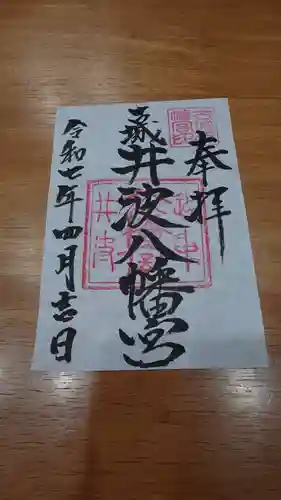 奉拝
古城
井波八幡宮
令和七年四月吉日
井波